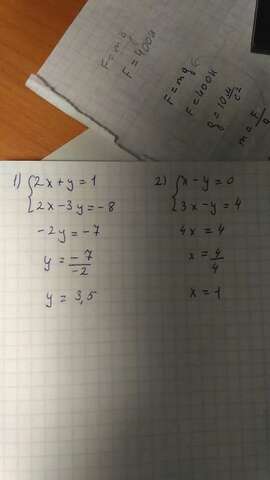 F = mg
F = 400н
F = mg
F = 400н
g = 10 м/с²
m = F/g
1) {2x + y = 1
2x - 3y = -8
-2y = -7
y = -7/-2
y = 3,5
2) {x - y = 0
3x - y = 4
4x = 4
x = 4/4
x = 1